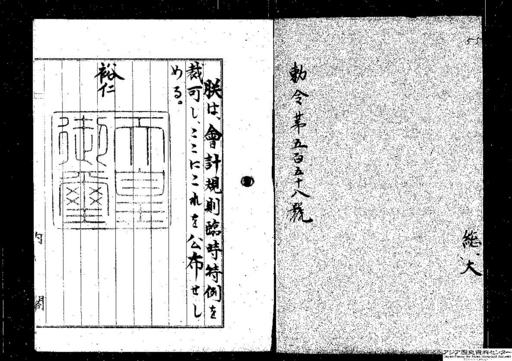 勅令第五百五十八號
總、大
朕は、會計規則臨時特例を
裁可し、ここにこれを公布せし
める。
裕仁
天皇
御璽
内
閣
アジア歴史資料センター